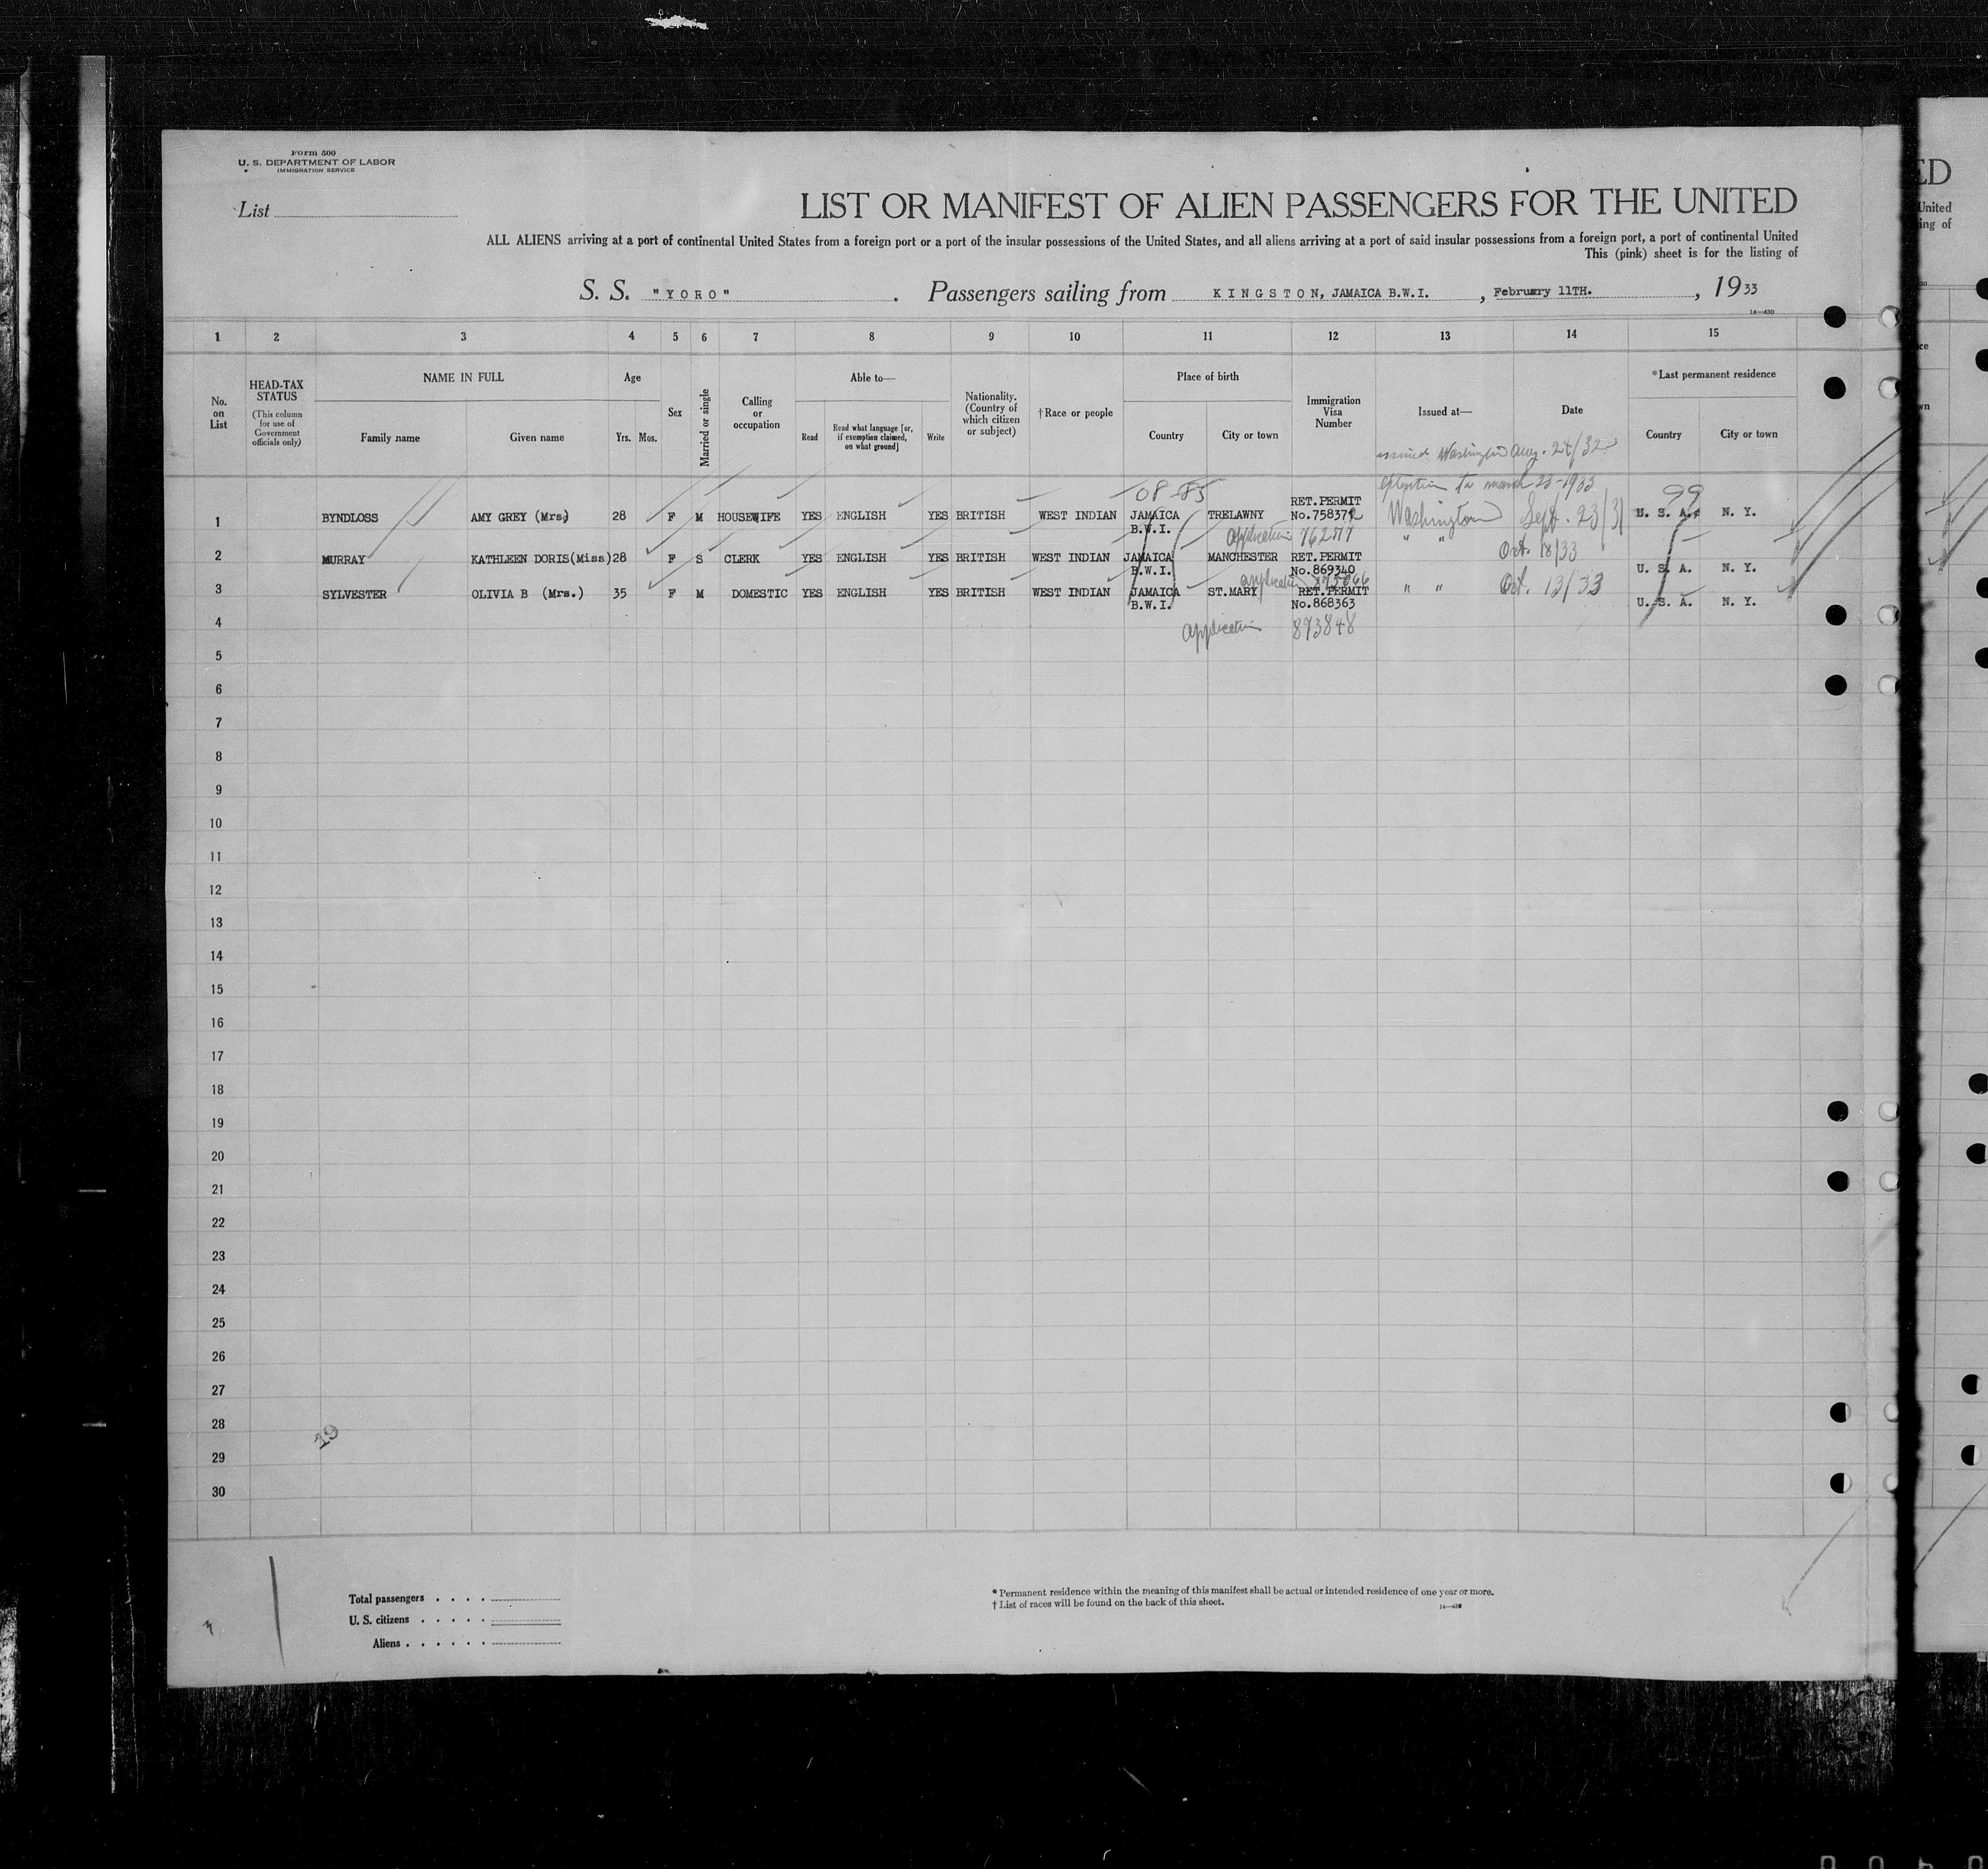 Form 500
U. S. DEPARTMENT OF LABOR
IMMIGRATION SERVICE
List
LIST OR MANIFEST OF ALIEN PASSENGERS FOR THE UNITED
ALL ALIENS arriving at a port of continental United States from a foreign port or a port of the insular possessions of the United States, and all aliens arriving at a port of said insular possessions from a foreign port, a port of continental United
This (pink) sheet is for the listing of
S. S. "YORO" . Passengers sailing from KINGSTON, JAMAICA B.W.I. , February 11TH. , 1933
1 2 3 4 5 6 7 8 9 10 11 12 13 14 15
No. on List
HEAD-TAX STATUS
(This column for use of Government officials only)
NAME IN FULL
Family name Given name
Age
Yrs. Mos.
Sex
Married or single
Calling or occupation
Able to—
Read
Read what language [or, if exemption claimed, on what ground]
Write
Nationality. (Country of which citizen or subject)
†Race or people
Place of birth
Country City or town
Immigration Visa Number
Issued at—
Date
*Last permanent residence
Country City or town
issued Washington Aug. 24/32
to march 23-1933
08-85
99
1 BYNDLOSS AMY GREY (Mrs) 28 F M HOUSEWIFE YES ENGLISH YES BRITISH WEST INDIAN JAMAICA B.W.I. TRELAWNY RET.PERMIT No.758372 Washington Sept. 23/31 U. S. A. N. Y.
application
2 MURRAY KATHLEEN DORIS(Miss) 28 F S CLERK YES ENGLISH YES BRITISH WEST INDIAN JAMAICA B.W.I. MANCHESTER RET.PERMIT No.869340 " " Oct. 18/33 U. S. A. N. Y.
application
3 SYLVESTER OLIVIA B (Mrs.) 35 F M DOMESTIC YES ENGLISH YES BRITISH WEST INDIAN JAMAICA B.W.I. ST.MARY RET.PERMIT No.868363 " " Oct. 13/33 U. S. A. N. Y.
application 873848
4
5
6
7
8
9
10
11
12
13
14
15
16
17
18
19
20
21
22
23
24
25
26
27
28
29
30
19
Total passengers
U. S. citizens
Aliens
* Permanent residence within the meaning of this manifest shall be actual or intended residence of one year or more.
† List of races will be found on the back of this sheet.